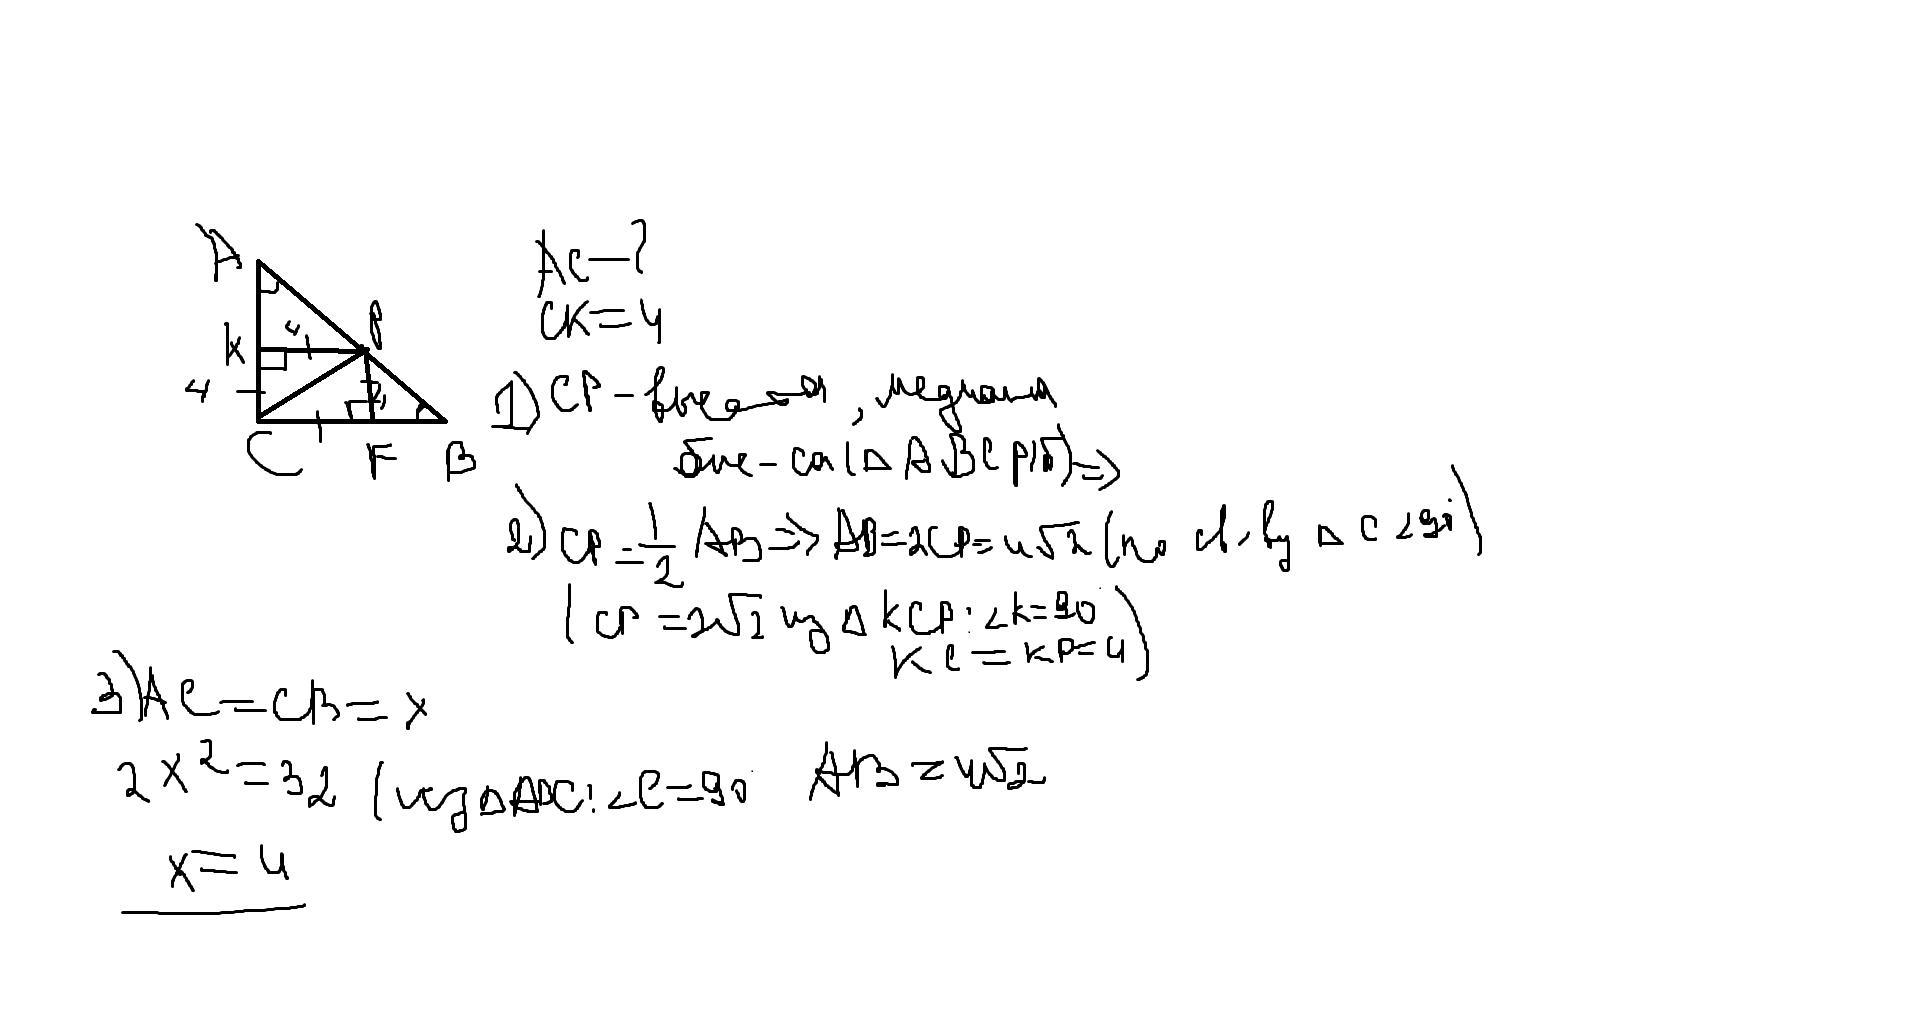 A
K
P
4
4
C
F
B
AC - ?
CK = 4
1) CP - высота, медиана
бис-са (△ABC р/б) =>
2) CP = 1/2 AB => AB = 2CP = 4√2 (по св. ву △ C ∠90°)
(CP = 2√2 из △KCP: ∠K=90°
KC = KP = 4)
3) AC = CB = x
2x² = 32 (из △ABC: ∠C = 90° AB = 4√2
x = 4